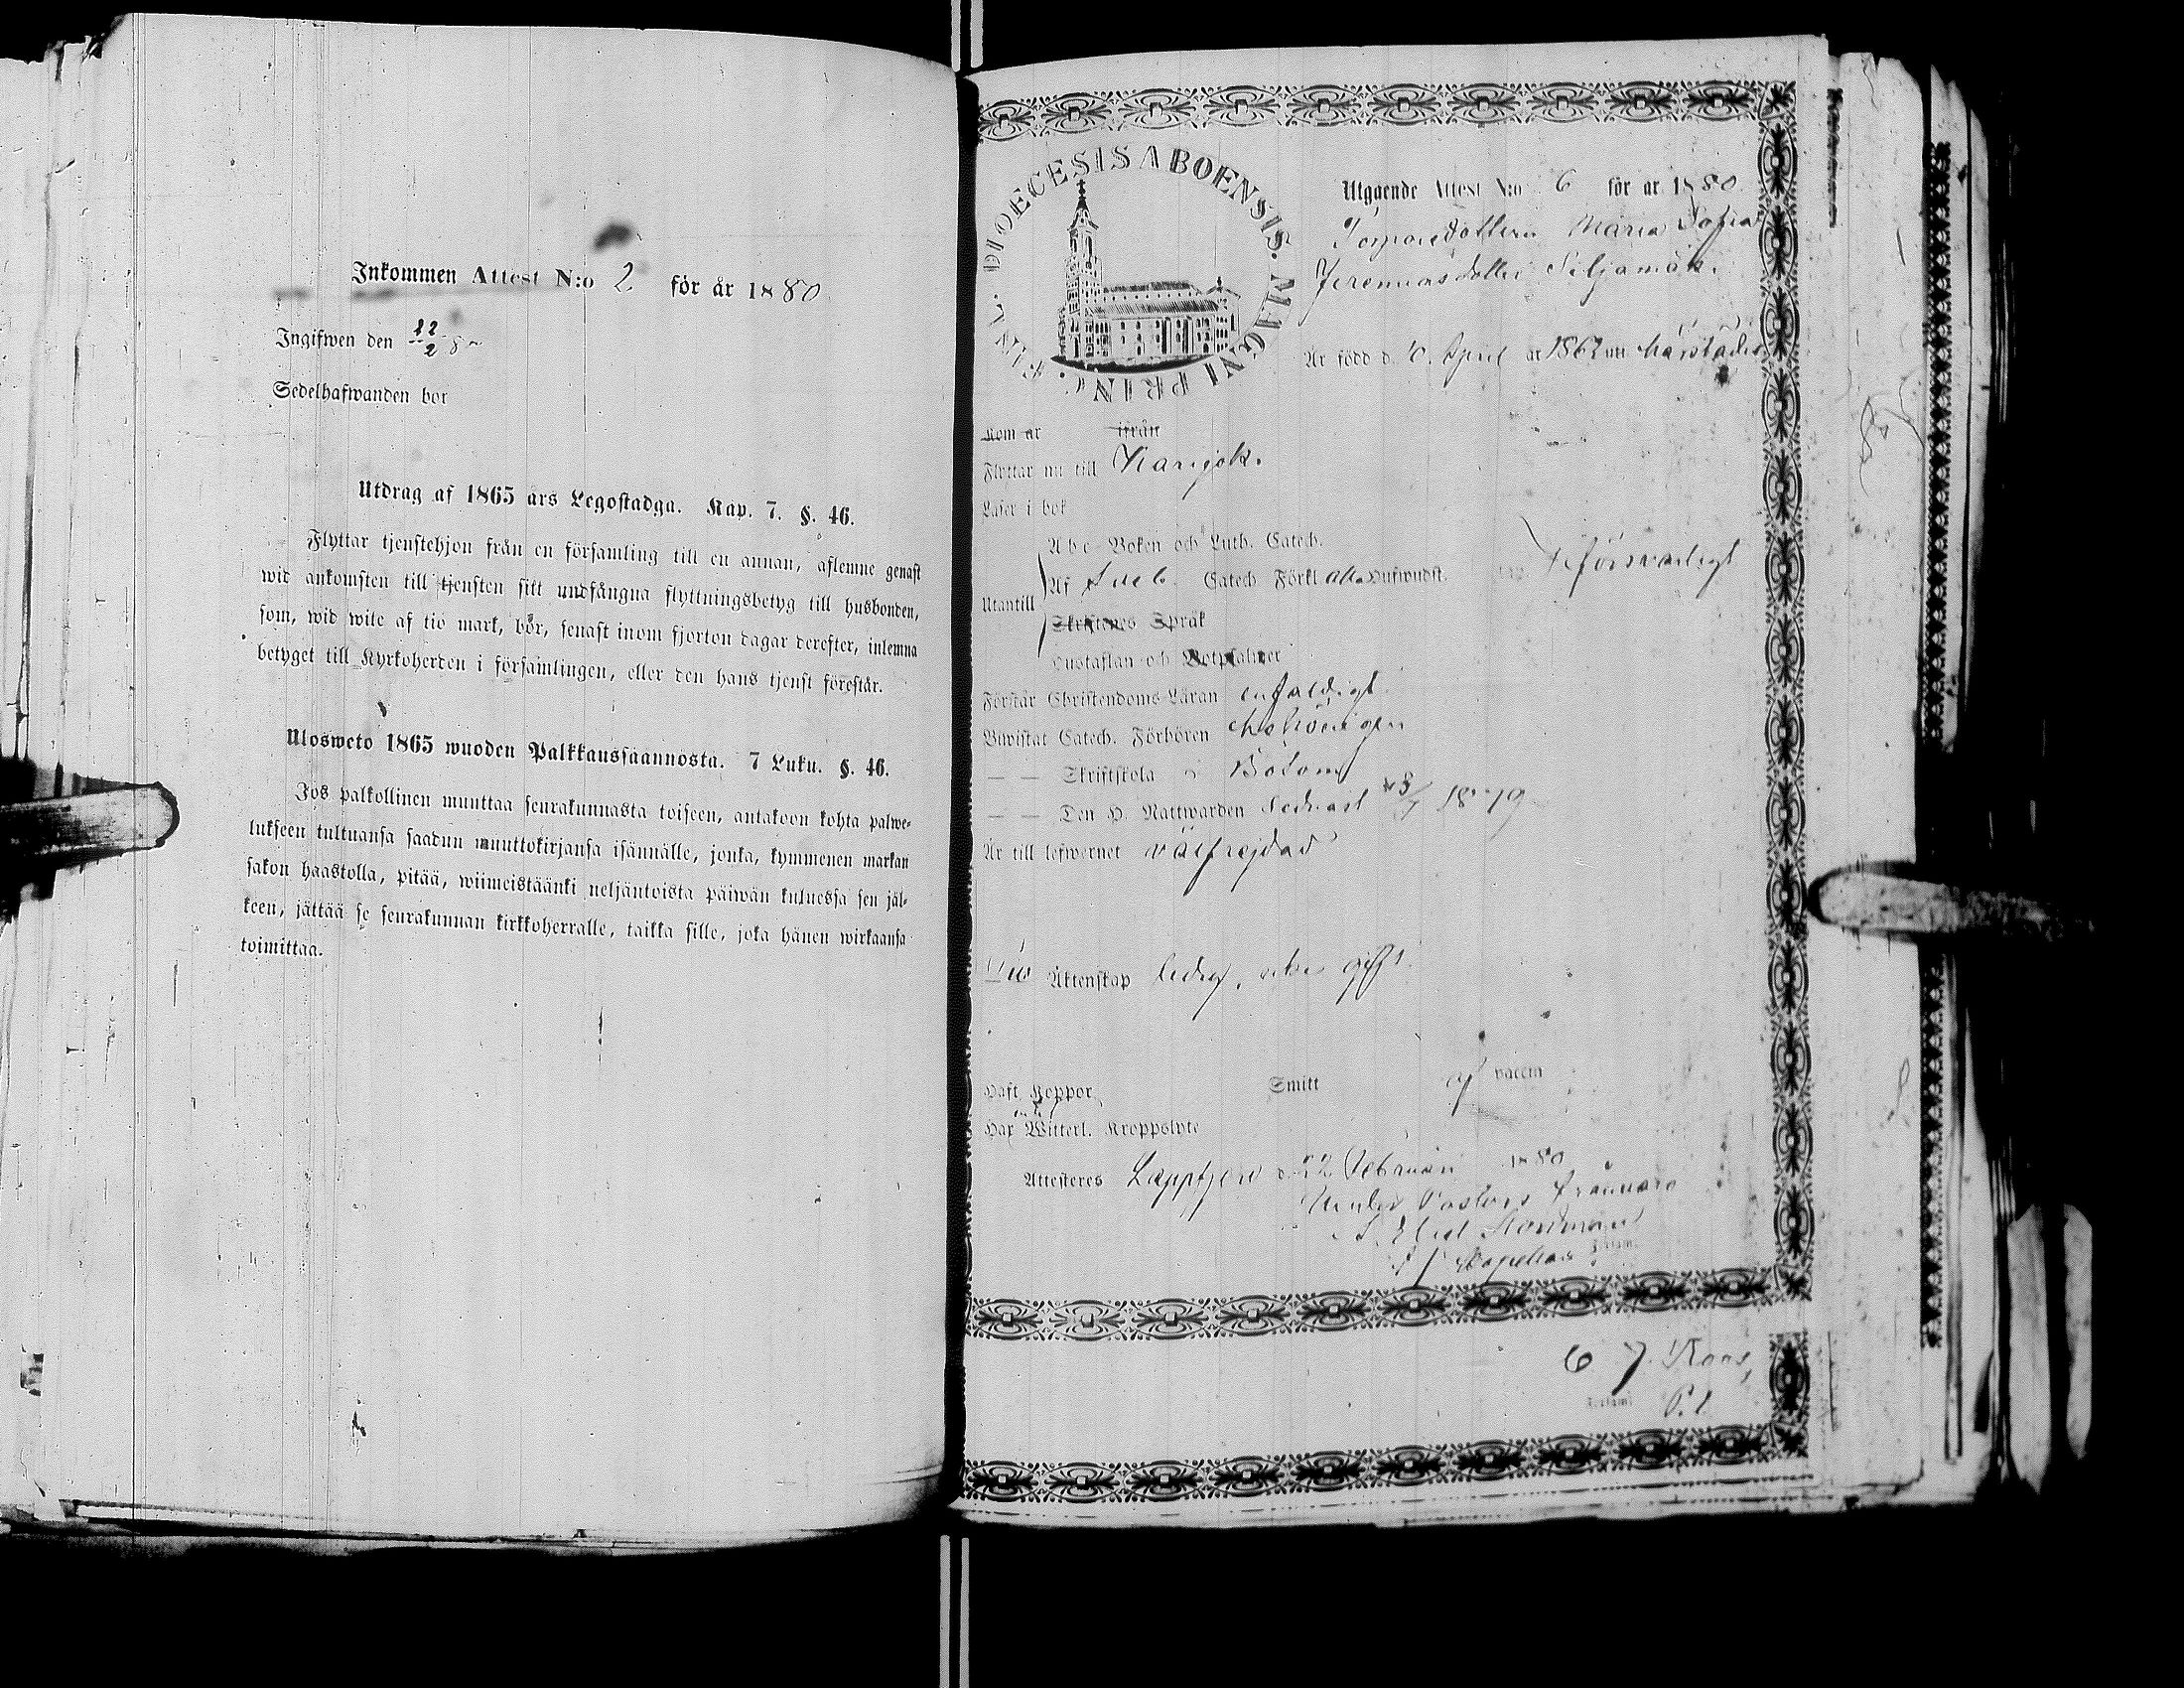 Inkommen Attest N:o 2 för år 1880
Ingifwen den 22/2 80
Sedelhafwanden bor
Utdrag af 1865 års Legostadga. Kap. 7. §. 46.
Flyttar tjenstehjon från en församling till en annan, aflemne genast
wid ankomsten till tjensten sitt undfångna flyttningsbetyg till husbonden,
som, wid wite af tio mark, bör, senast inom fjorton dagar derefter, inlemna
betyget till Kyrkoherden i församlingen, eller den hans tjenst förestår.
Ulosweto 1865 wuoden Palkkaussäännöstä. 7 Luku. §. 46.
Jos palkollinen muuttaa seurakunnasta toiseen, antakoon kohta palwe-
lukseen tultuansa saadun muuttokirjansa isännälle, jonka, kymmenen markan
sakon haastolla, pitää, wiimeistäänki neljäntoista päiwän kuluessa sen jäl-
keen, jättää se seurakunnan kirkkoherralle, taikka sille, joka hänen wirkaansa
toimittaa.
DIOECESIS ABOENSIS. MAGNI PRINC. FINL.
Utgående Attest N:o 6 för år 1880
Torparedottern Maria Sofia
Jeremiasdotter Siljamäki
Är född d. 10 April år 1862 uti härstädes
Kom år ifrån
Flyttar nu till Karijoki.
Läser i bok
Abc-Boken och Luth. Catech.
Utantill Af Sveb. Catech Förkl alla Hufwudst. försvarligt
Skriftenes Språk
Hustaflan och Botpsalmer
Förstår Christendoms-Läran enfaldigt.
Biwistat Catech. Förhören
— — Skriftskola i Bötom
— — Den H. Nattwarden sednast 1879
Är till lefwernet välfrejdad
Till Äktenskap ledig, icke gift.
Haft Koppor Smitt af vaccin
Har Witterl. Kroppslyte
Attesteres Lappfjerd d. 22 Februari 1880
Under Pastors frånvaro
Kapellan
6 7 Kons,